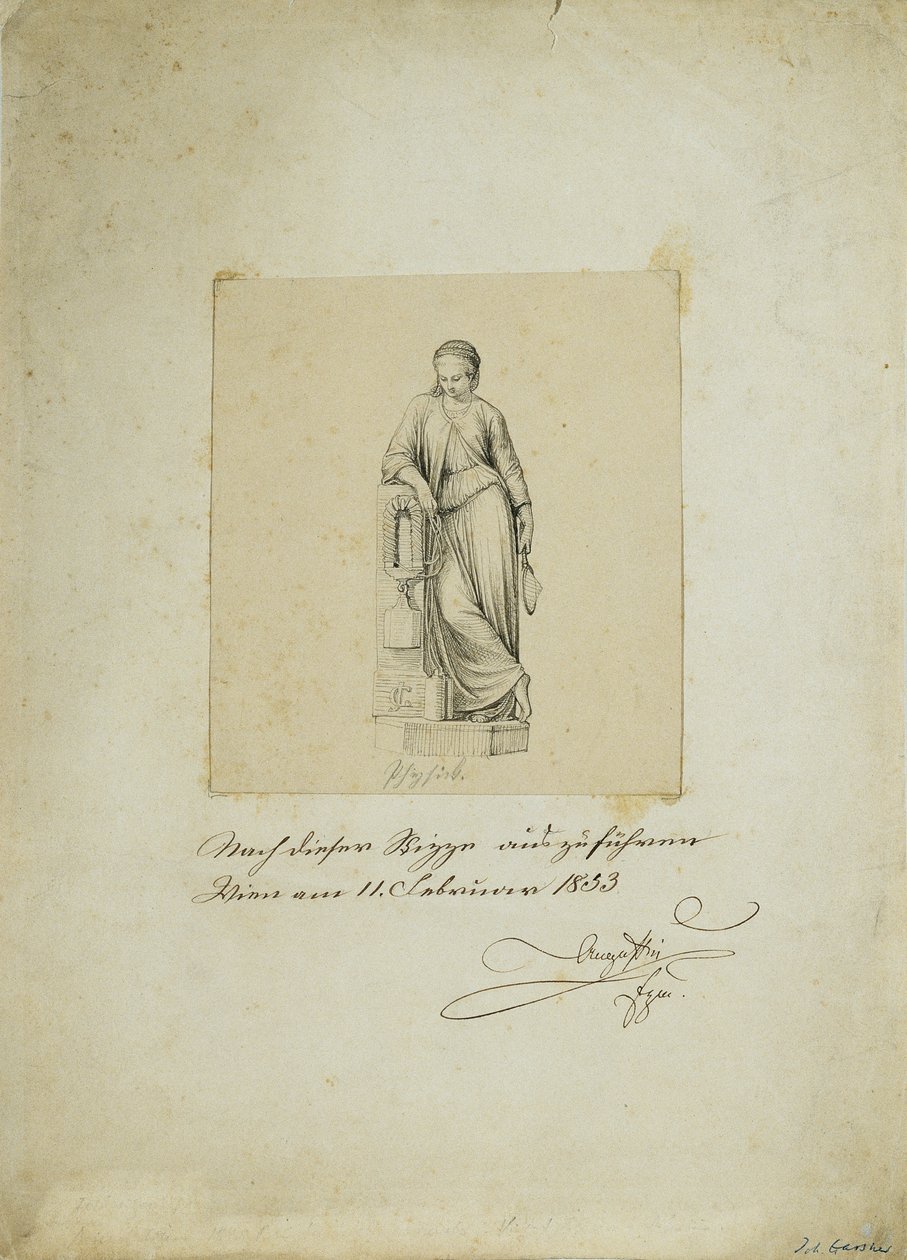 Physik.
Nach dieser Skizze auszuführen
Wien am 11. Februar 1853
Augustin
Fzm.
Joh. Gassner